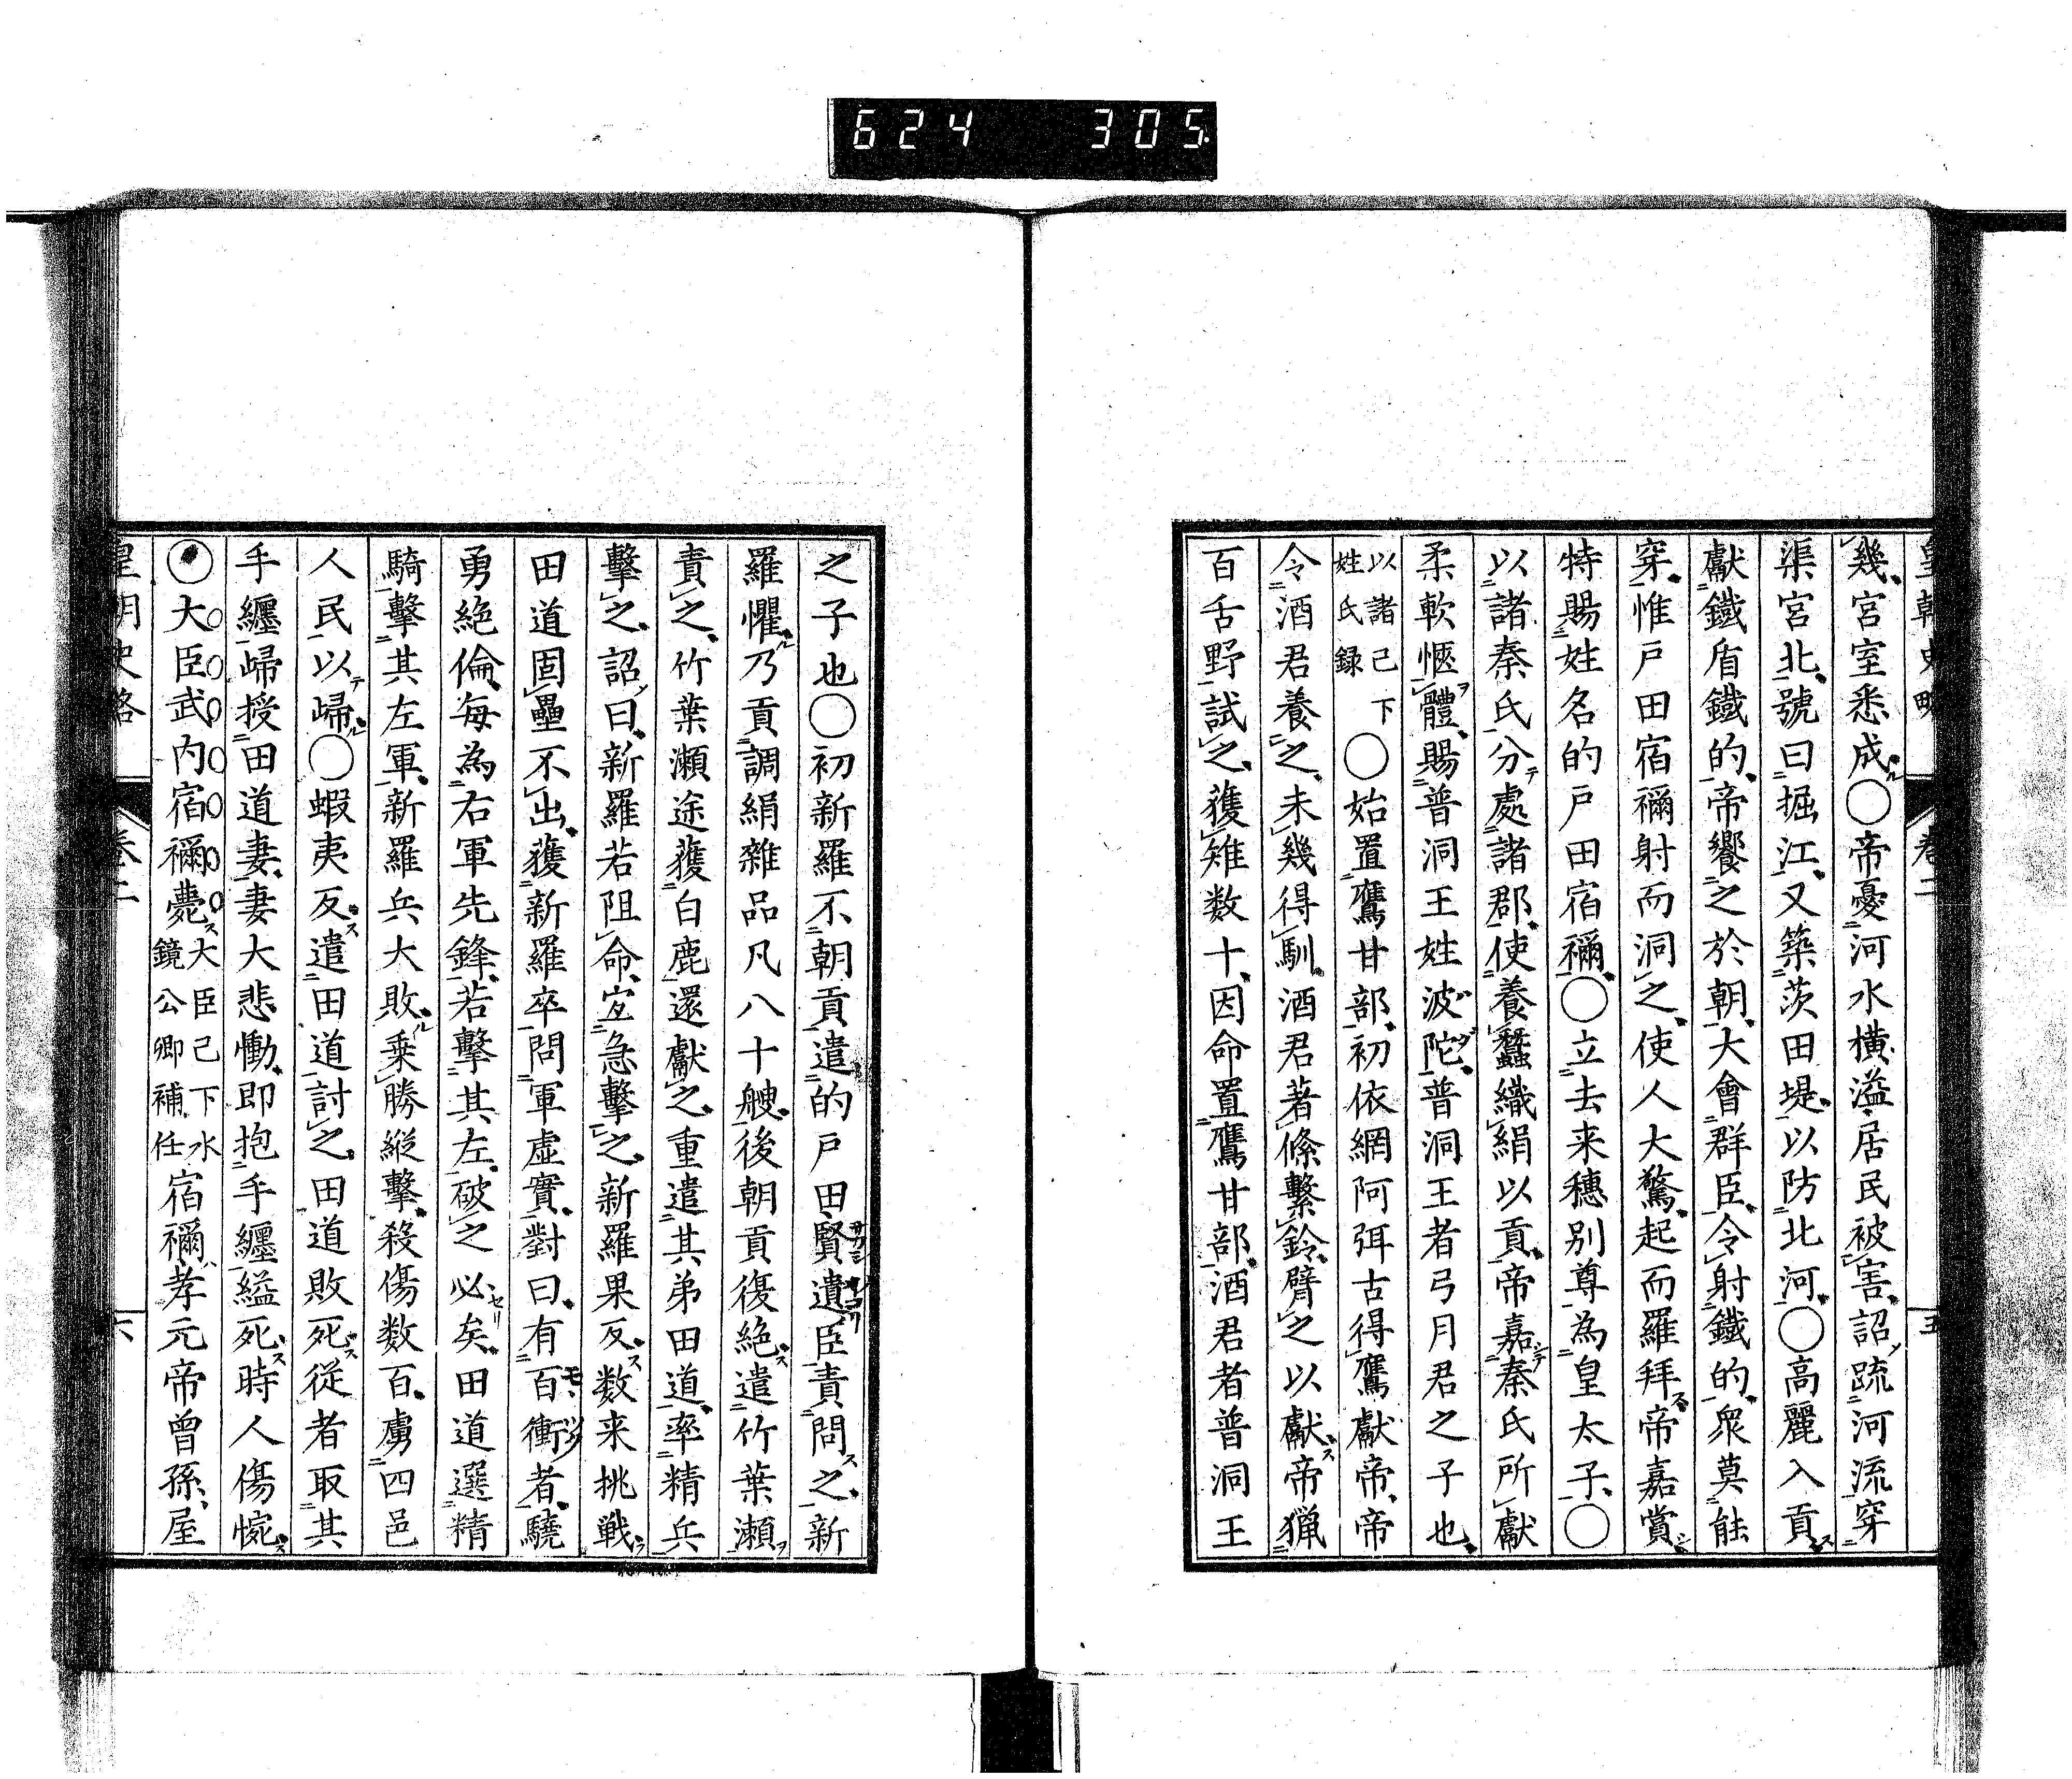 624 305
皇朝史略 卷二 五
幾、宮室悉成○帝憂河水橫溢、居民被害、詔疏河流穿
渠宮北、號曰掘江、又築茨田堤、以防北河○高麗入貢
獻鐵盾鐵的、帝饗之於朝、大會群臣、令射鐵的、衆莫能
穿、惟戸田宿禰射而洞之、使人大驚、起而羅拜、帝嘉賞
特賜姓名的戸田宿禰、○立去来穗別尊為皇太子、○
以諸秦氏分處諸郡、使養蠶織絹以貢、帝嘉秦氏所獻
柔軟愜體、賜普洞王姓波陀、普洞王者弓月君之子也、
以諸己下姓氏録○始置鷹甘部、初依網阿弭古得鷹獻帝、帝
令酒君養之、未幾得馴、酒君著絛繫鈴、臂之以獻、帝猟
百舌野試之、獲雉数十、因命置鷹甘部、酒君者普洞王
之子也○初新羅不朝貢、遣的戸田、賢遺臣責問之、新
羅懼、乃貢調絹雜品凡八十艘、後朝貢復絶、遣竹葉瀬
責之、竹葉瀬途獲白鹿還獻之、重遣其弟田道、率精兵
擊之、詔曰、新羅若阻命、宜急擊之、新羅果反、数来挑戦、
田道固壘不出、獲新羅卒問軍虛實、對曰、有百衝者、驍
勇絶倫、每為右軍先鋒、若擊其左、破之必矣、田道選精
騎擊其左軍、新羅兵大敗、乗勝縦擊、殺傷数百、虜四邑
人民以歸○蝦夷反、遣田道討之、田道敗死、従者取其
手纏歸授田道妻、妻大悲慟、即抱手纏縊死、時人傷惋、
○大臣武内宿禰薨大臣己下水鏡公卿補任宿禰、孝元帝曾孫、屋
皇朝史略 卷二 六